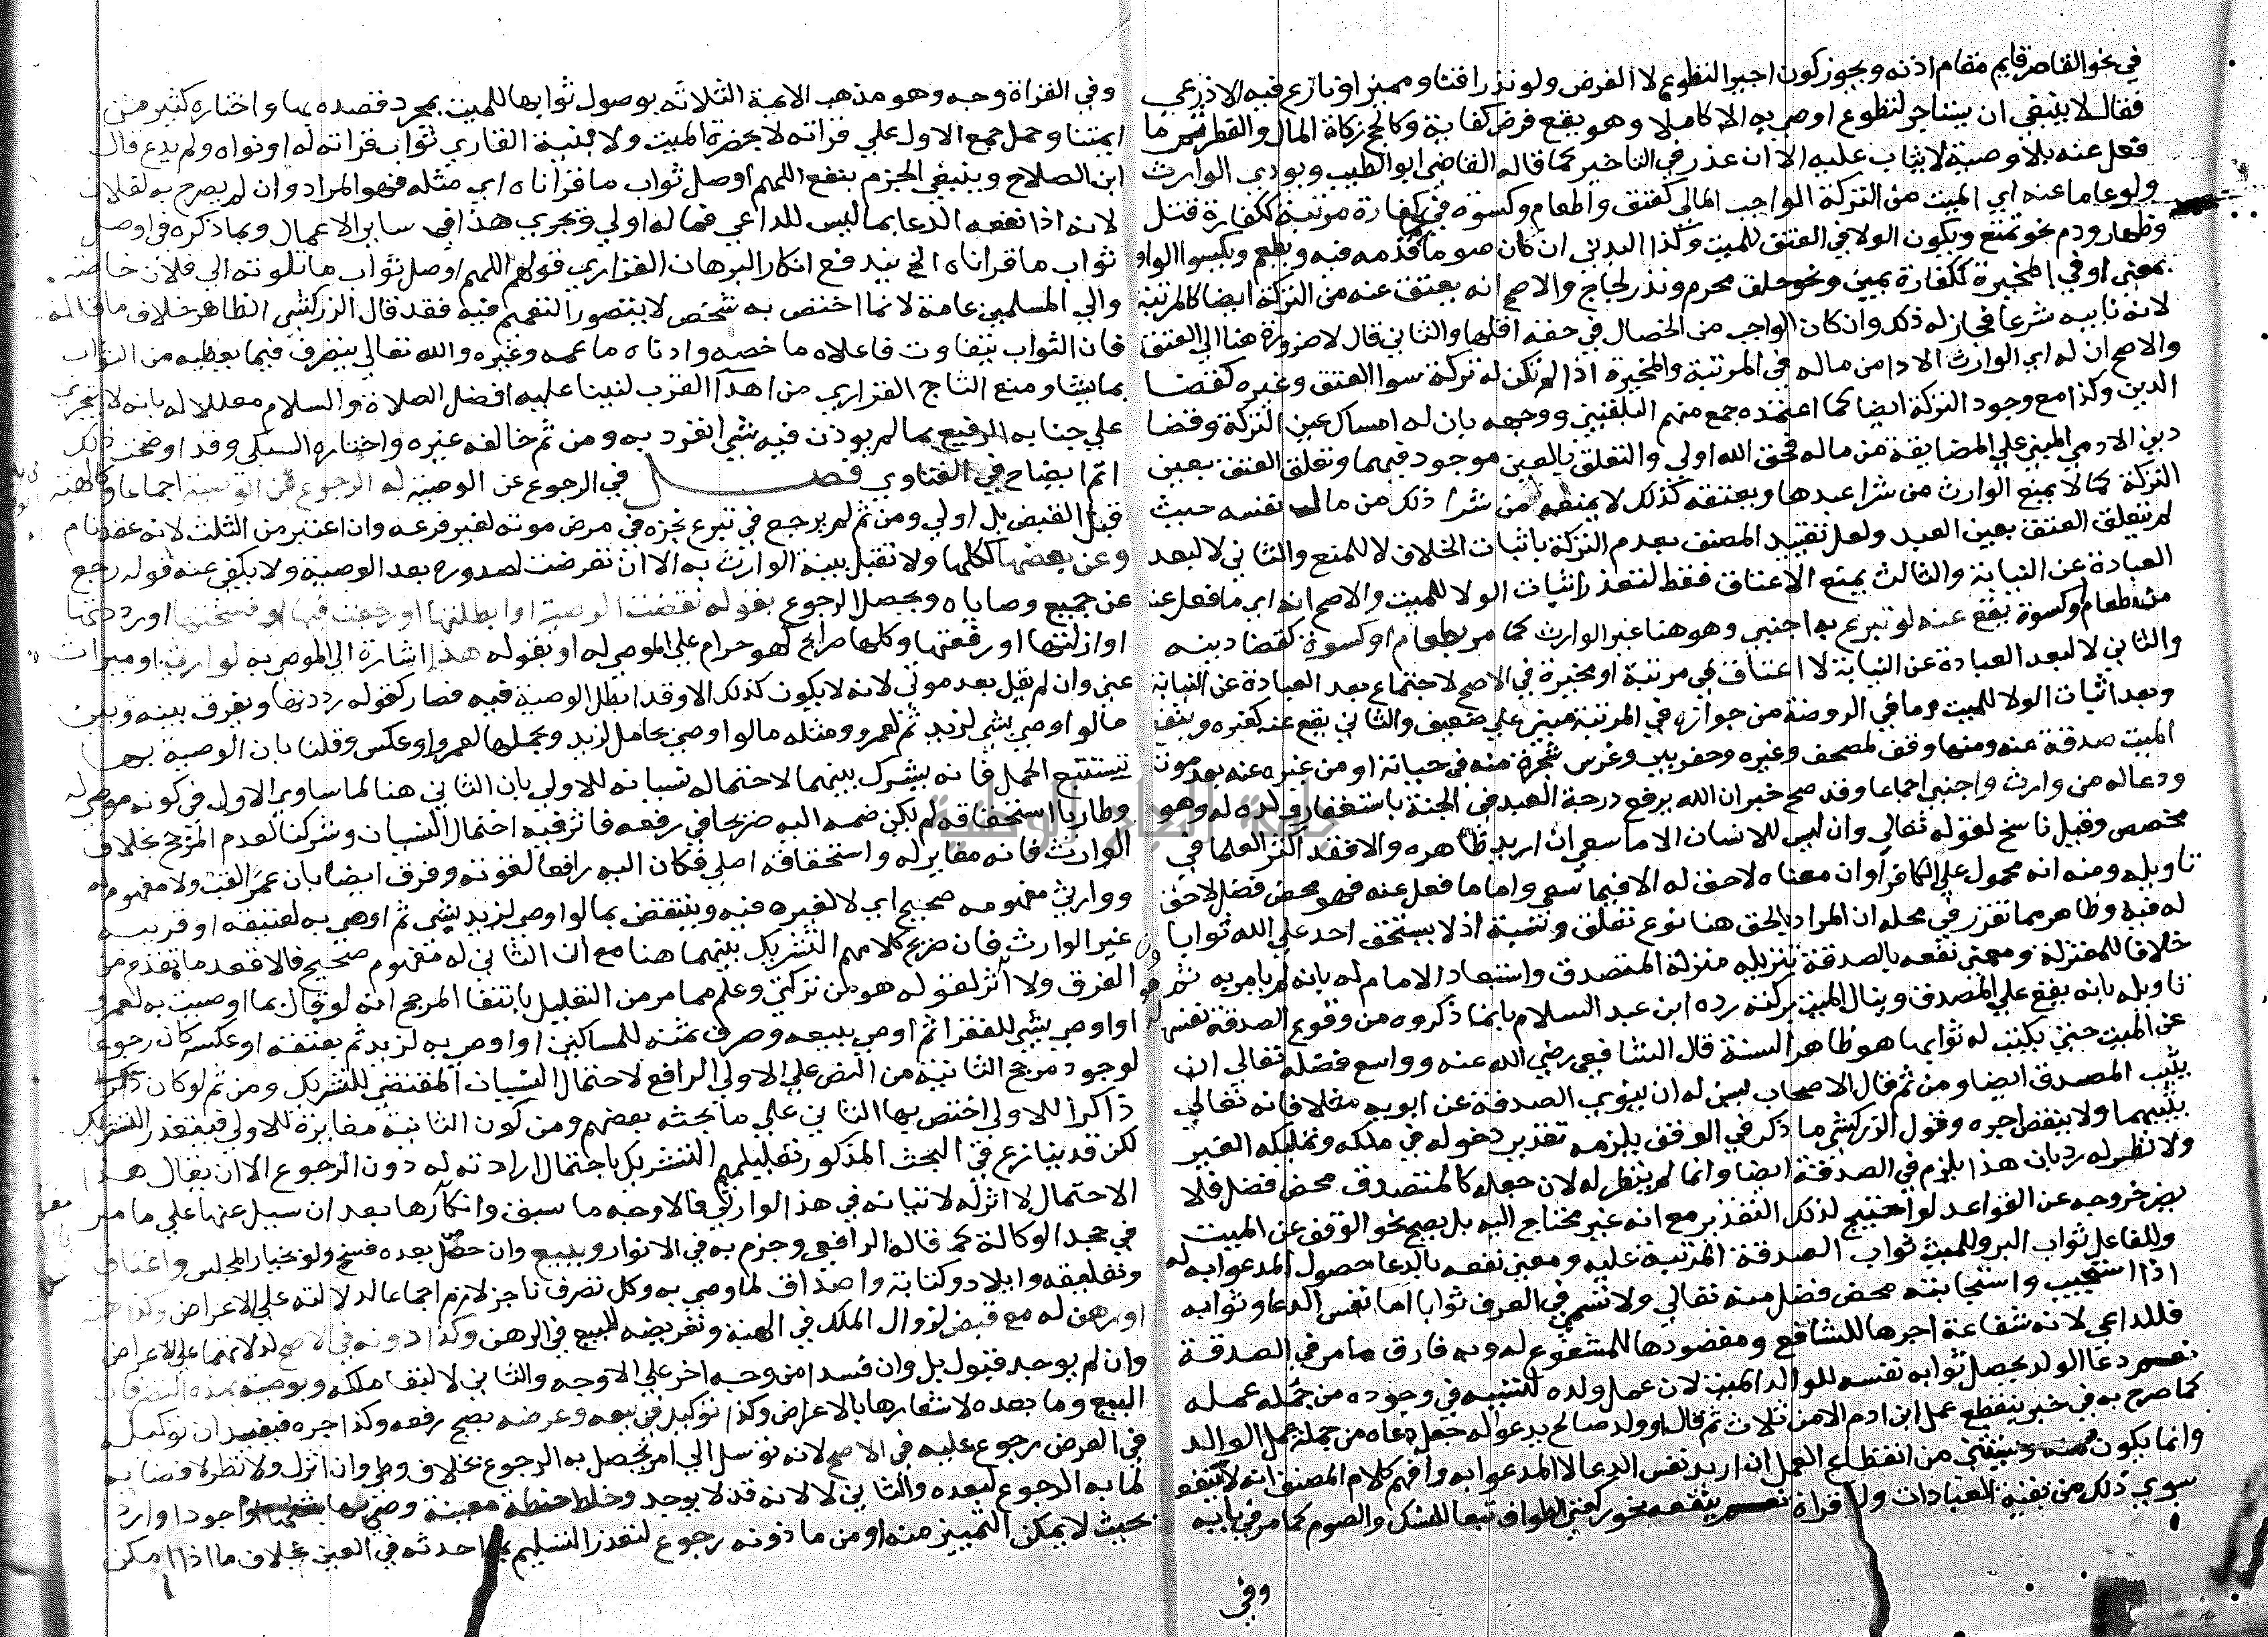 في نحو القاصر قايم مقام اذنه ويجوز كون اجير التطوع لا الفرض ولو نذرا قنا ومميزا ونازع فيه الاذرعي
فقال لا ينبغي ان يستاجر لتطوع اوصي به الا كاملا وهو يقع فرض كفاية وكالحج زكاة المال والفطر ثم ما
فعل عنه بلا وصية لا يثاب عليه الا ان عذر في التاخير كما قاله القاضي ابو الطيب ويودي الوارث
ولو عاما عنه اي الميت من التركة الواجب المالي كعتق واطعام وكسوة في كفارة مرتبة ككفارة قتل
وظهار ودم نحو تمتع ويكون الولا في العتق للميت وكذا البدني ان كان صوما قدمه فيه ويطعم ويكسوا الواو
بمعني او في المخيرة ككفارة يمين ونحو حلق محرم ونذر لجاج والاصح انه يعتق عنه من التركة ايضا كالمرتبة
لانه نايبه شرعا فجاز له ذلك وان كان الواجب من الخصال في حقه اقلها والثاني قال لا ضرورة هنا الي العتق
والاصح ان له اي الوارث الادا من ماله في المرتبة والمخيرة اذا لم تكن له تركة سوا العتق وغيره كقضا
الدين وكذا مع وجود التركة ايضا كما اعتمده جمع منهم البلقيني ووجهه بان له امساك عين التركة وقضا
دين الادمي المبني علي المضايقة من ماله فحق الله اولي والتعلق بالعين موجود فيهما وتعلق العتق بعين
التركة كما لا يمنع الوارث من شرا عبدها ويعتقه كذلك لا يمنعه من شرا ذلك من مال نفسه حيث
لم يتعلق العتق بعين العبد ولعل تقييد المصنف بعدم التركة باثبات الخلاف لا للمنع والثاني لا لبعد
العبادة عن النيابة والثالث يمنع الاعتاق فقط لتعذر اثبات الولا للميت والاصح انه اي ما فعل عنه
من طعام وكسوة يقع عنه لو تبرع به اجنبي وهو هنا غير الوارث كما مر بطعام او كسوة كقضا دينه
والثاني لا لبعد العبادة عن النيابة لا اعتاق في مرتبة او مخيرة في الاصح لاجتماع بعد العبادة عن النيابة
وبعد اثبات الولا للميت وما في الروضة من جوازه في المرتبة مبني علي ضعيف والثاني يقع عنه كغيره وينفع
الميت صدقة عنه ومنها وقف لمصحف وغيره وحفر بير وغرس شجرة منه في حياته او من غيره عنه بعد موته
ودعا له من وارث واجنبي اجماعا وقد صح خبر ان الله يرفع درجة العبد في الجنة باستغفار ولده له وهو
مخصص وقيل ناسخ لقوله تعالي وان ليس للانسان الا ما سعي ان اريد ظاهره والا فقد اكثر العلما في
تاويله ومنه انه محمول علي الكافر او ان معناه لا حق له الا فيما سعي واما ما فعل عنه فهو محض فضل لا حق
له فيه وظاهر مما تقرر في محله ان المراد بالحق هنا نوع تعلق ونسبة اذ لا يستحق احد علي الله ثوابا
خلافا للمعتزلة ومعني نفعه بالصدقة تنزيله منزلة المتصدق واستبعاد الامام له بانه لم يامر به ثم
تاويله بانه يقع علي المصدق وينال الميت بركته رده ابن عبد السلام بان ما ذكروه من وقوع الصدقة نفسها
عن الميت حتي يكتب له ثوابها هو ظاهر السنة قال الشافعي رضي الله عنه وواسع فضله تعالي ان
يثيب المصدق ايضا ومن ثم قال الاصحاب يسن له ان ينوي الصدقة عن ابويه مثلا فانه تعالي
يثيبهما ولا ينقص اجره وقول الزركشي ما ذكر في الوقف يلزمه تقدير دخوله في ملكه وتمليكه الغير
ولا نظير له رد بان هذا يلزم في الصدقة ايضا وانما لم ينظر له لان جعله كالمتصدق محض فضل فلا
يضر خروجه عن القواعد لو احتيج لذلك التقدير مع انه غير محتاج اليه بل يصح نحو الوقف عن الميت
وللفاعل ثواب البر وللميت ثواب الصدقة المرتبة عليه ومعني نفعه بالدعا حصول المدعو به له
اذا استجيب واستجابته محض فضل منه تعالي ولا تسمي في العرف ثوابا اما نفس الدعا وثوابه
فللداعي لانه شفاعة اجرها للشافع ومقصودها للمشفوع له وبه فارق ما مر في الصدقة
نعم دعا الولد يحصل ثوابه نفسه للوالد الميت لان عمل ولده لتسببه في وجوده من جملة عمله
كما صرح به في خبر ينقطع عمل ابن ادم الا من ثلاث ثم قال او ولد صالح يدعو له جعل دعاه من جملة عمل الوالد
وانما يكون منه ويستثني من انقطاع العمل ان اريد نفس الدعا لا المدعو به وافهم كلام المصنف انه لا ينفعه
سوي ذلك من بقية العبادات ولو قراة نعم ينفعه نحو ركعتي الطواف تبعا للنسك والصوم كما مر في بابه
وفي
وفي القراة وجه وهو مذهب الايمة الثلاثه بوصول ثوابها للميت بمجرد قصده بها واختاره كثير من
ايمتنا وحمل جمع الاول علي قراته لا بحضرة الميت ولا بنية القاري ثواب قراته له او نواه ولم يدع قال
ابن الصلاح وينبغي الجزم بنفع اللهم اوصل ثواب ما قراناه اي مثله فهو المراد وان لم يصرح به لفلان
لانه اذا نفعه الدعا بما ليس للداعي فما له اولي ويجري هذا في ساير الاعمال وبما ذكره في اوصل
ثواب ما قراناه الخ يندفع انكار البرهان الفزاري قولهم اللهم اوصل ثواب ما تلوته الي فلان خاصة
والي المسلمين عامة لان ما اختص به شخص لا يتصور التعميم فيه فقد قال الزركشي الظاهر خلاف ما قاله
فان الثواب يتفاوت فاعلاه ما خصه وادناه ما عمه وغيره والله تعالي يتصرف فيما يعطيه من الثواب
بما يشا ومنع التاج الفزاري من اهدا القرب لنبينا عليه افضل الصلاة والسلام معللا له بانه لا يتجري
علي جنابه الرفيع بما لم يوذن فيه شي انفرد به ومن ثم خالفه غيره واختاره السبكي وقد اوضحت ذلك
اتم ايضاح في الفتاوي فصل في الرجوع عن الوصية له الرجوع عن الوصية اجماعا وكالهبة
قبل القبض بل اولي ومن ثم لم يرجع في تبرع نجزه في مرض موته لغير فرعه وان اعتبر من الثلث لانه عقد تام
وعن بعضها ككلها ولا تقبل بينة الوارث به الا ان تعرضت لصدوره بعد الوصية ولا يكفي عنه قوله رجع
عن جميع وصاياه ويحصل الرجوع بقوله نقضت الوصية او ابطلتها او رجعت فيها او فسختها او رددتها
او ازلتها او رفعتها وكلها صرايح كهو حرام علي الموصي له او بقوله هذا اشارة الي الموصي به لوارثي او ميراث
عني وان لم يقل بعد موتي لانه لا يكون كذلك الا وقد ابطل الوصية فيه فصار كقوله رددتها ويفرق بينه وبين
ما لو اوصي بشي لزيد ثم لعمرو ومثله ما لو اوصي بحامل لزيد وبحملها لعمرو او عكس وقلنا بان الوصية بها
تستتبع الحمل فانه يشرك بينهما لاحتماله نسيانه للاولي بان الثاني هنا لما ساوي الاول في كونه موصي له
وطاريا استحقاقه لم يكن ضمه اليه صريحا في رفعه فاثر فيه احتمال النسيان وشركنا لعدم المرجح بخلاف
الوارث فانه مغاير له واستحقاقه اصلي فكان اليه رافعا لقوته وفرق ايضا بان عمرا لقب ولا مفهوم له
ووارثي مفهومه صحيح اي لا لغيره فيه وينتقض بما لو اوصي لزيد بشي ثم اوصي به لعتيقه او قريبه
غير الوارث فان صريح كلامهم التشريك بينهما هنا مع ان الثاني له مفهوم صحيح فالاقعد ما تقدم من
الفرق ولا اثر لقوله هو من تركتي وعلم مما مر من التعليل بانتفا المرجح انه لو قال بما اوصيت به لعمرو
او اوصي بشي للفقرا ثم اوصي ببيعه وصرف ثمنه للمساكين او اوصي به لزيد ثم بعتقه او عكسه كان رجوعا
لوجود مرجح الثانية من النص علي الاولي الرافع لاحتمال النسيان المقتضي للتشريك ومن ثم لو كان ذكر
ذاكرا للاولي اختص بها الثاني علي ما بحثه بعضهم ومن كون الثانية مغايرة للاولي فيتعذر التشريك
لكن قد ينازع في البحث المذكور تعليلهم التشريك باحتمال ارادته له دون الرجوع الا ان يقال هذا
الاحتمال لا اثر له لاتيانه في هذا لوارثي فالاوجه ما سبق وانكارها بعد ان سيل عنها علي ما مر
في جحد الوكالة كما قاله الرافعي وجزم به في الانوار وببيع وان حصل بعده فسخ ولو بخيار المجلس واعتاق
وتعليقه وايلاد وكتابة واصداق لما وصي به وكل تصرف ناجز لازم اجماعا لدلالته علي الاعراض وكذا هبة
او رهن له مع قبض لزوال الملك في الهبة وتعريضه للبيع في الرهن وكذا دونه في الاصح لدلالتهما علي الاعراض
وان لم يوجد قبول بل وان فسدا من وجه اخر علي الاوجه والثاني لا لبقا ملكه وبوصية بهذه التصرفات
البيع وما بعده لاشعارها بالاعراض وكذا توكيل في بيعه وعرضه يصح رفعه وكذا جره فيفيد ان توكيله
في العرض رجوع عليه في الاصح لانه توسل الي امر يحصل به الرجوع بخلاف وطي وان انزل ولا نظر لافضايه
لما به الرجوع لبعده والثاني لا لانه قد لا يوجد وخلط حنطة معينة وصي بها بمثلها واجود او اردا
بحيث لا يمكن التمييز منه او من ماذونه رجوع لتعذر التسليم بما احدثه في العين بخلاف ما اذا امكن